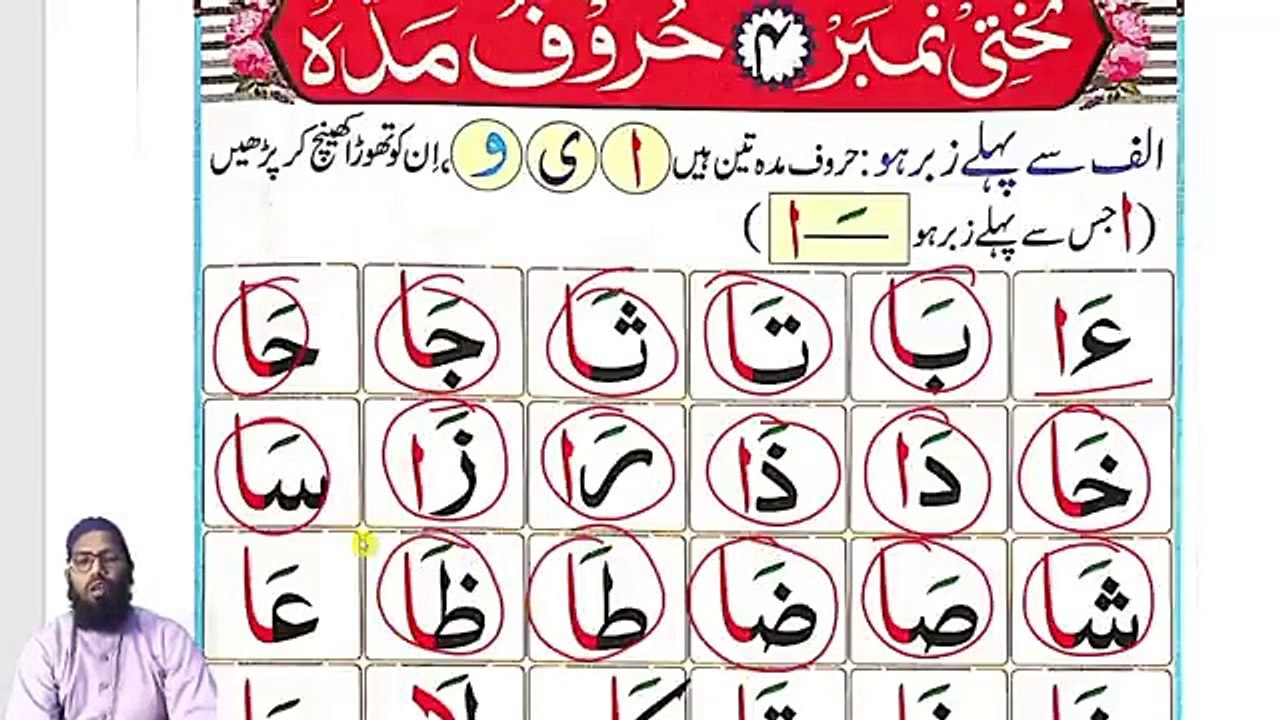 تختی نمبر ۴ حُروْف مَدَّہ
الف سے پہلے زبر ہو: حروف مدہ تین ہیں ا ی و، اِن کو تھوڑا کھینچ کر پڑھیں
(ا جس سے پہلے زبر ہو ــَـ ا)
ءَا بَا تَا ثَا جَا حَا
خَا دَا ذَا رَا زَا سَا
شَا صَا ضَا طَا ظَا عَا